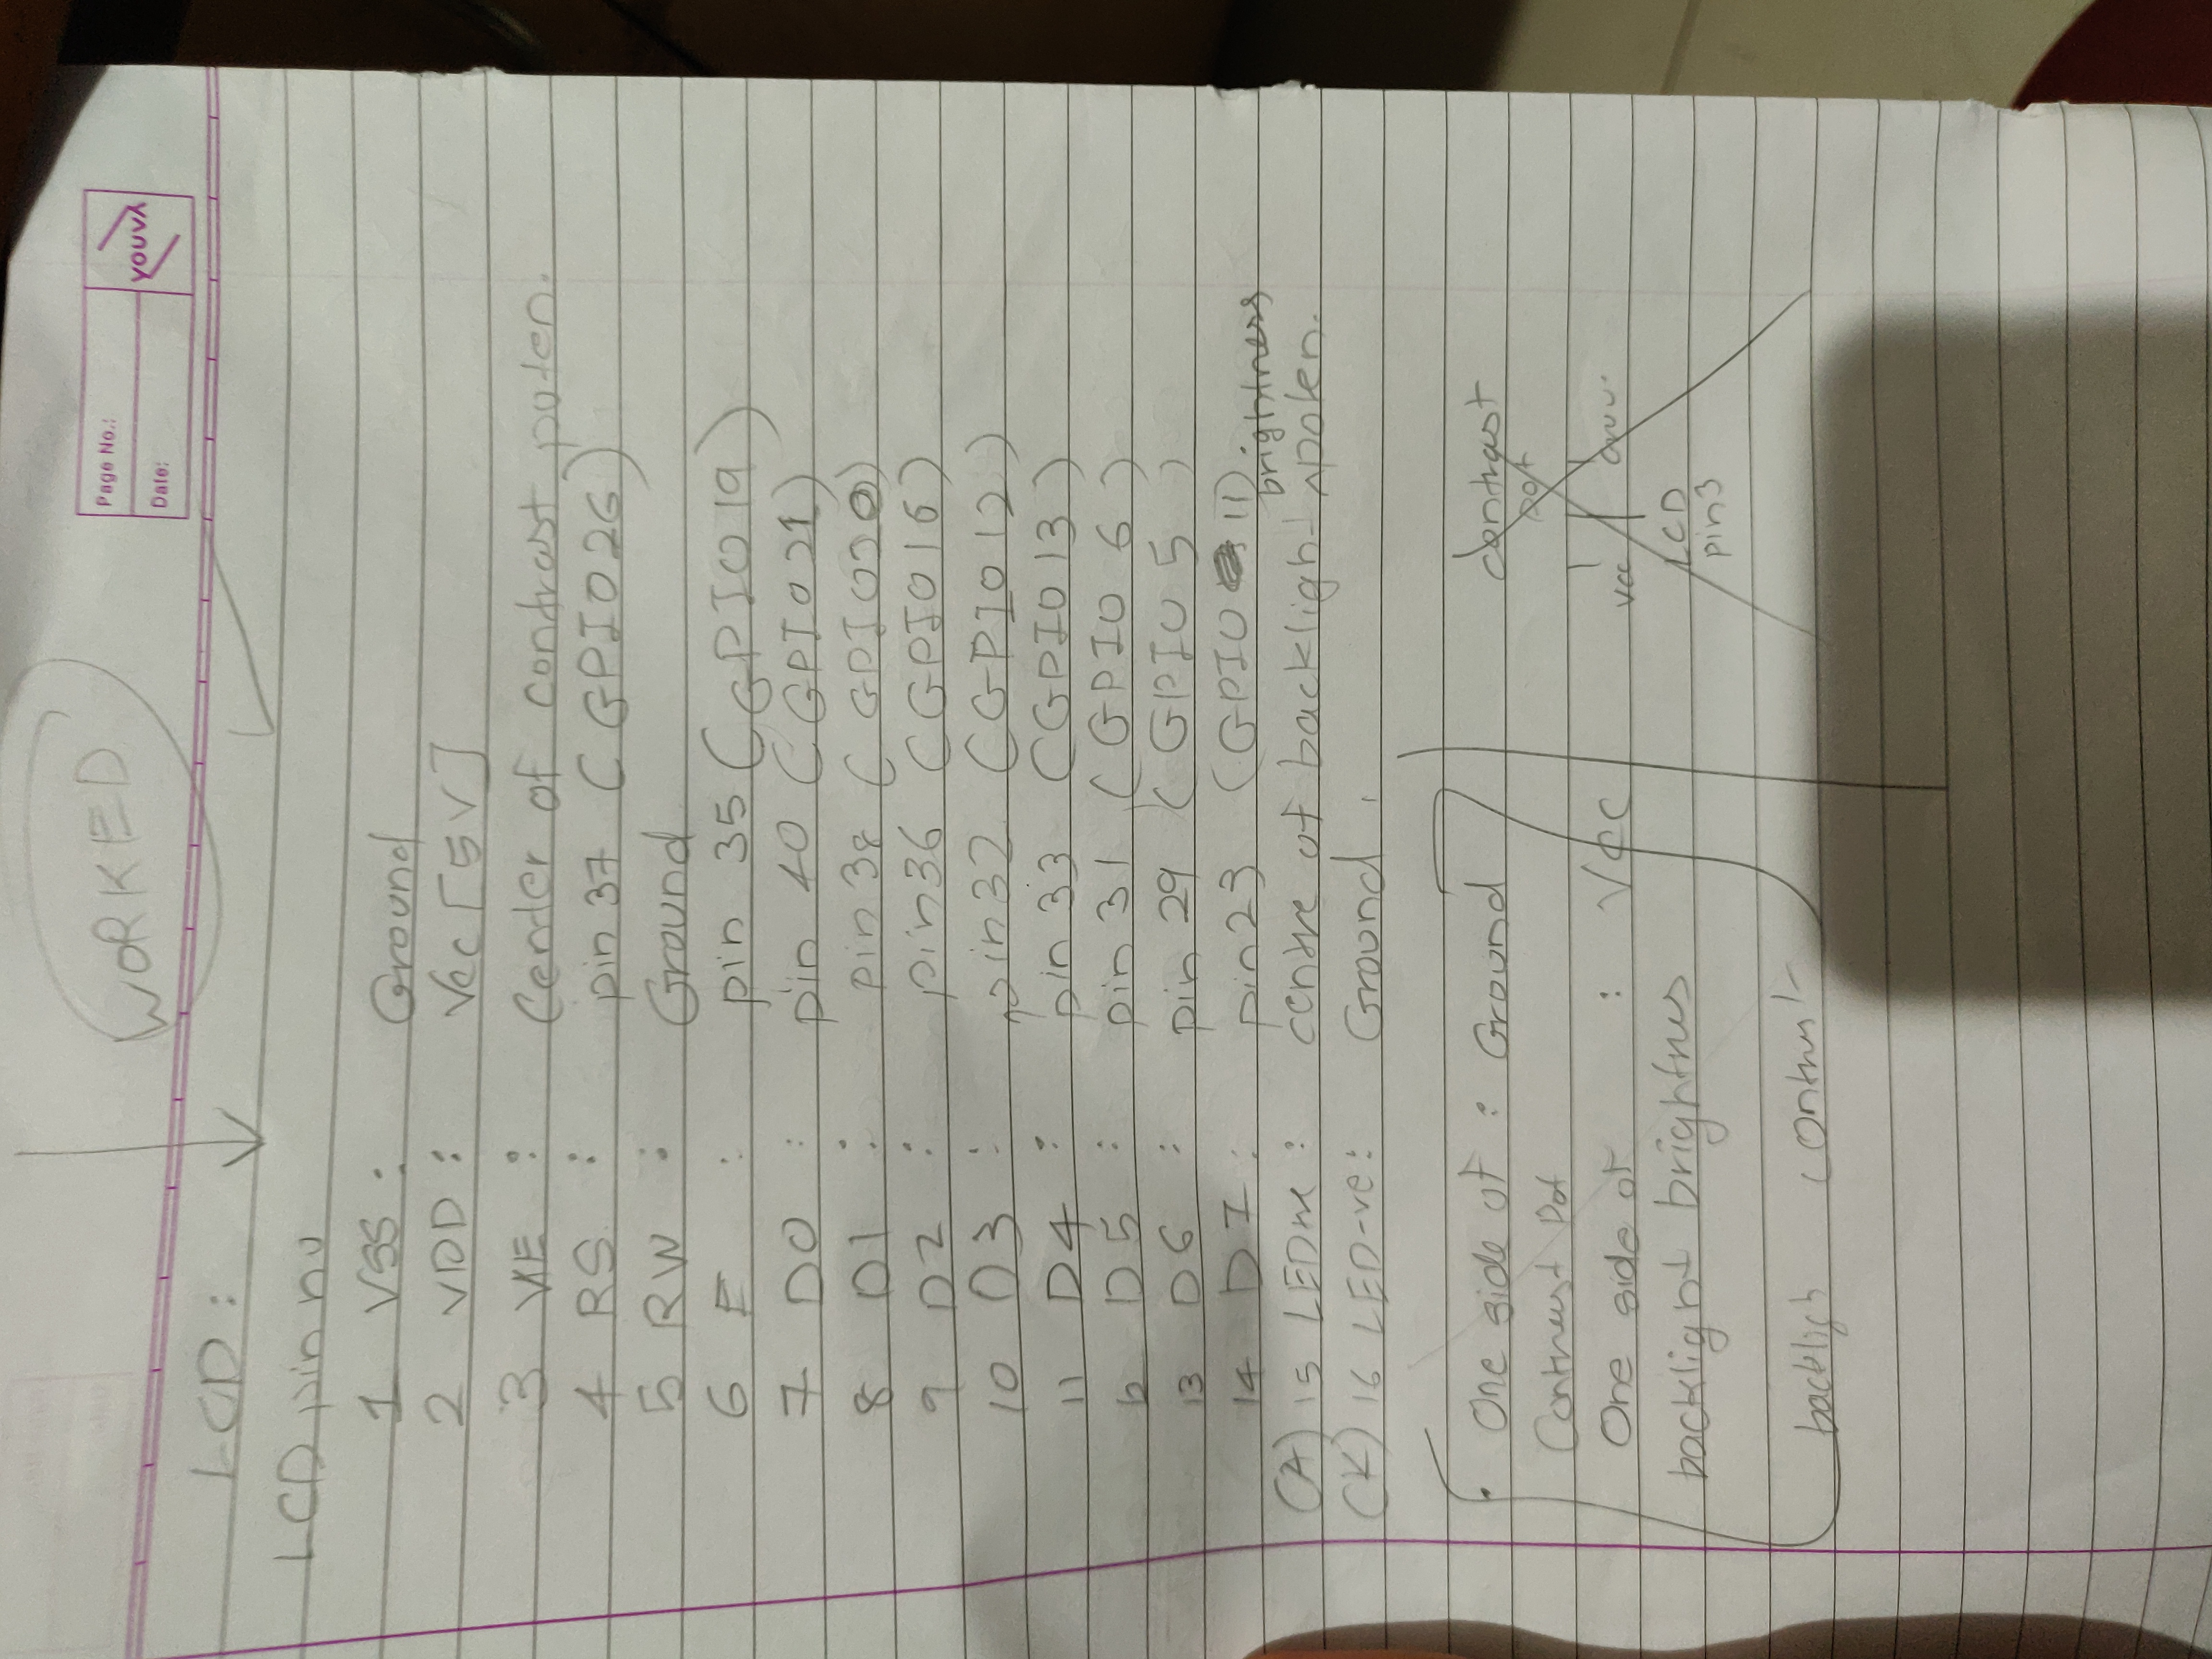 WORKED
Page No.:
Date:
YOUVA
LCD :
LCD pin no
1 VSS : Ground
2 VDD : Vcc [5V]
3 VEE : Center of contrast poten.
4 RS : pin 37 (GPIO26)
5 RW : Ground
6 E : pin 35 (GPIO19)
7 D0 : pin 40 (GPIO21)
8 D1 : pin 38 (GPIO20)
9 D2 : pin36 (GPIO16)
10 D3 : pin32 (GPIO12)
11 D4 : pin 33 (GPIO13)
12 D5 : pin 31 (GPIO 6)
13 D6 : pin 29 (GPIO 5)
14 D7 : pin23 (GPIO 11)
brightness
(A) 15 LED+ve : centre of backlight ^poten.
(K) 16 LED-ve : Ground
One side of : Ground
Contrast Pot
One side of : Vcc
backlight brightnes
backligh contrast
contrast
pot
Vcc
LCD
pin3